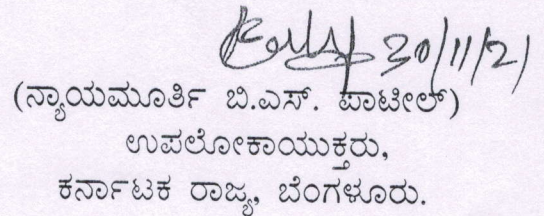 30/11/21
(ನ್ಯಾಯಮೂರ್ತಿ ಬಿ.ಎಸ್. ಪಾಟೀಲ್)
ಉಪಲೋಕಾಯುಕ್ತರು,
ಕರ್ನಾಟಕ ರಾಜ್ಯ, ಬೆಂಗಳೂರು.